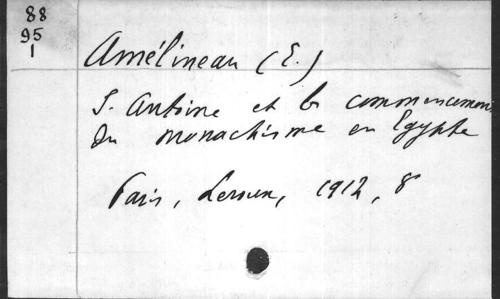 88
95
1
Amélineau (E.)
S. Antoine et le commencement
du monachisme en Egypte
Paris, Leroux, 1912, 8°